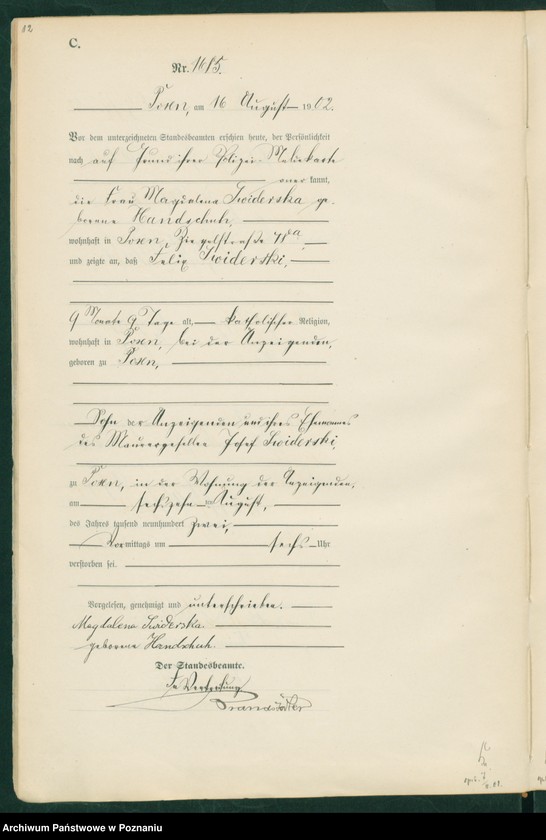 12
C.
Nr. 1615.
Posen, am 16 August 1902.
Vor dem unterzeichneten Standesbeamten erschien heute, der Persönlichkeit
nach auf Grund ihrer Polizei-Meldekarte
kannt,
die Frau Magdalena Swiderska ge-
borene Handschuh,
wohnhaft in Posen, Ziegelstraße
und zeigte an, daß Felix Swiderski,
9 Monate 9 Tage alt, katholischer Religion,
wohnhaft in Posen, bei der Anzeigenden,
geboren zu Posen,
Sohn der Anzeigenden und ihres Ehemannes
des Maurergesellen Josef Swiderski,
zu Posen, in der Wohnung der Anzeigenden,
am sechszehn ten August,
des Jahres tausend neunhundert zwei,
Vormittags um sechs Uhr
verstorben sei.
Vorgelesen, genehmigt und unterschrieben.
Magdalena Swiderska
geborene Handschuh.
Der Standesbeamte.
In Vertretung
Archiwum Państwowe w Poznaniu